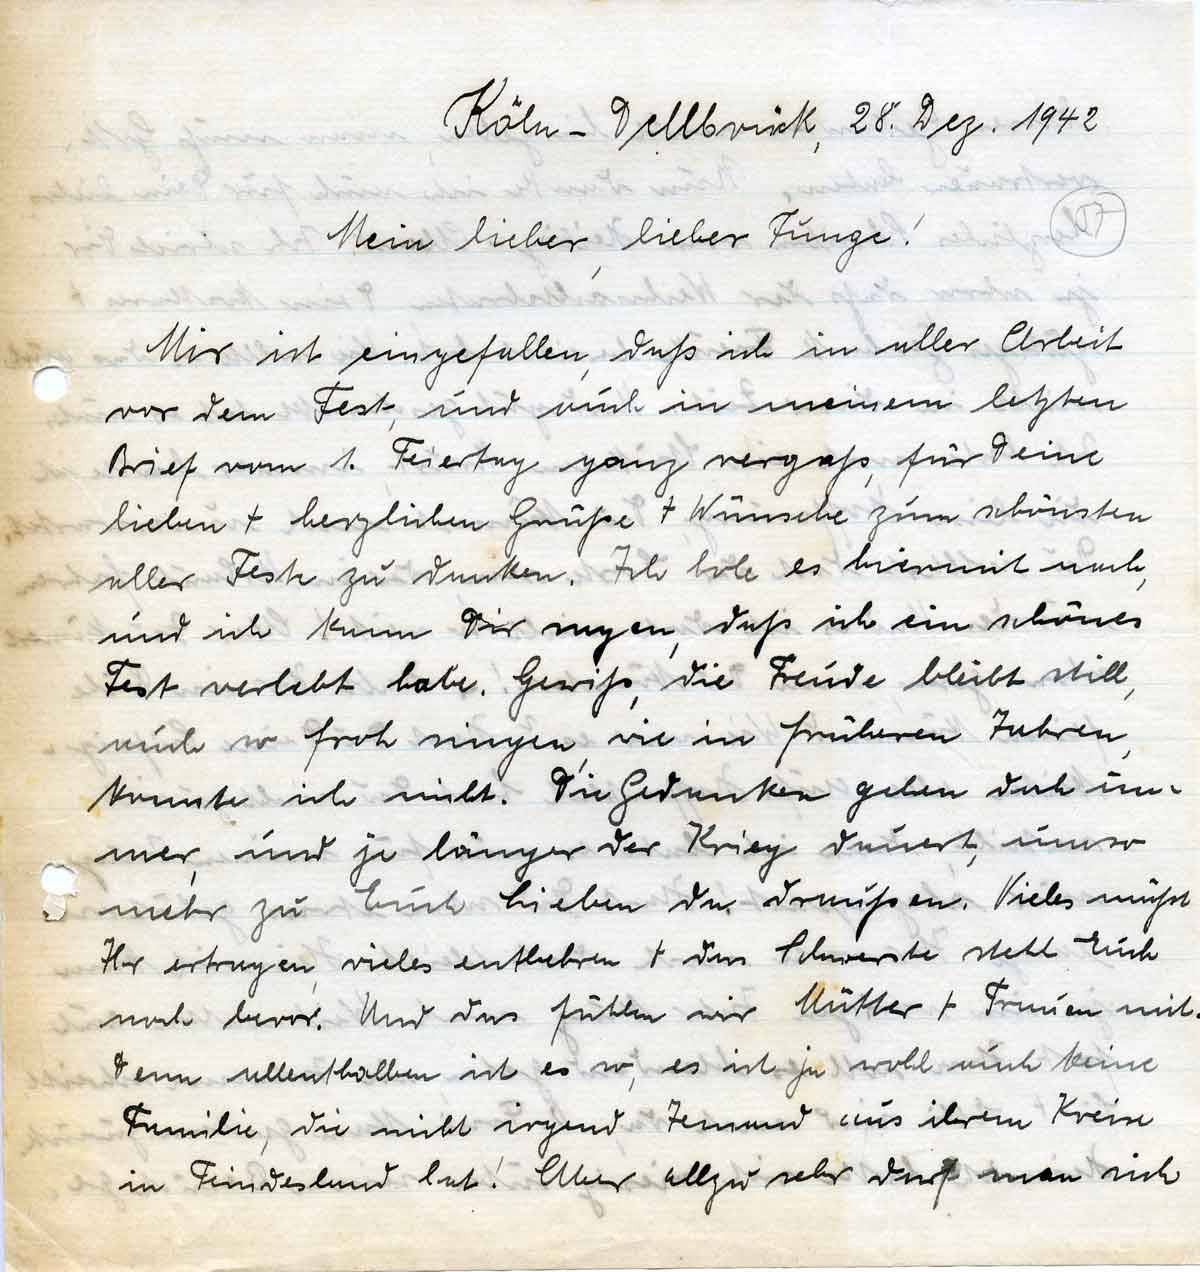 Köln-Dellbrück, 28. Dez. 1942
57
Mein lieber, lieber Junge!
Mir ist eingefallen, daß ich in aller Arbeit
vor dem Fest, und auch in meinem letzten
Brief vom 1. Feiertag ganz vergaß, für Deine
lieben + herzlichen Grüße + Wünsche zum schönsten
aller Feste zu danken. Ich hole es hiermit nach,
und ich kann Dir sagen, daß ich ein schönes
Fest verlebt habe. Gewiß, die Freude bleibt still,
auch so froh singen, wie in früheren Jahren,
konnte ich nicht. Die Gedanken gehen doch im-
mer, und je länger der Krieg dauert, umso
mehr zu Euch Lieben da draußen. Vieles müßt
Ihr ertragen, vieles entbehren + das Schwerste steht Euch
noch bevor. Und das fühlen wir Mütter + Frauen mit.
Denn allenthalben ist es so, es ist ja wohl auch keine
Familie, die nicht irgend Jemand aus ihrem Kreise
in Feindesland hat! Aber allzu sehr darf man sich